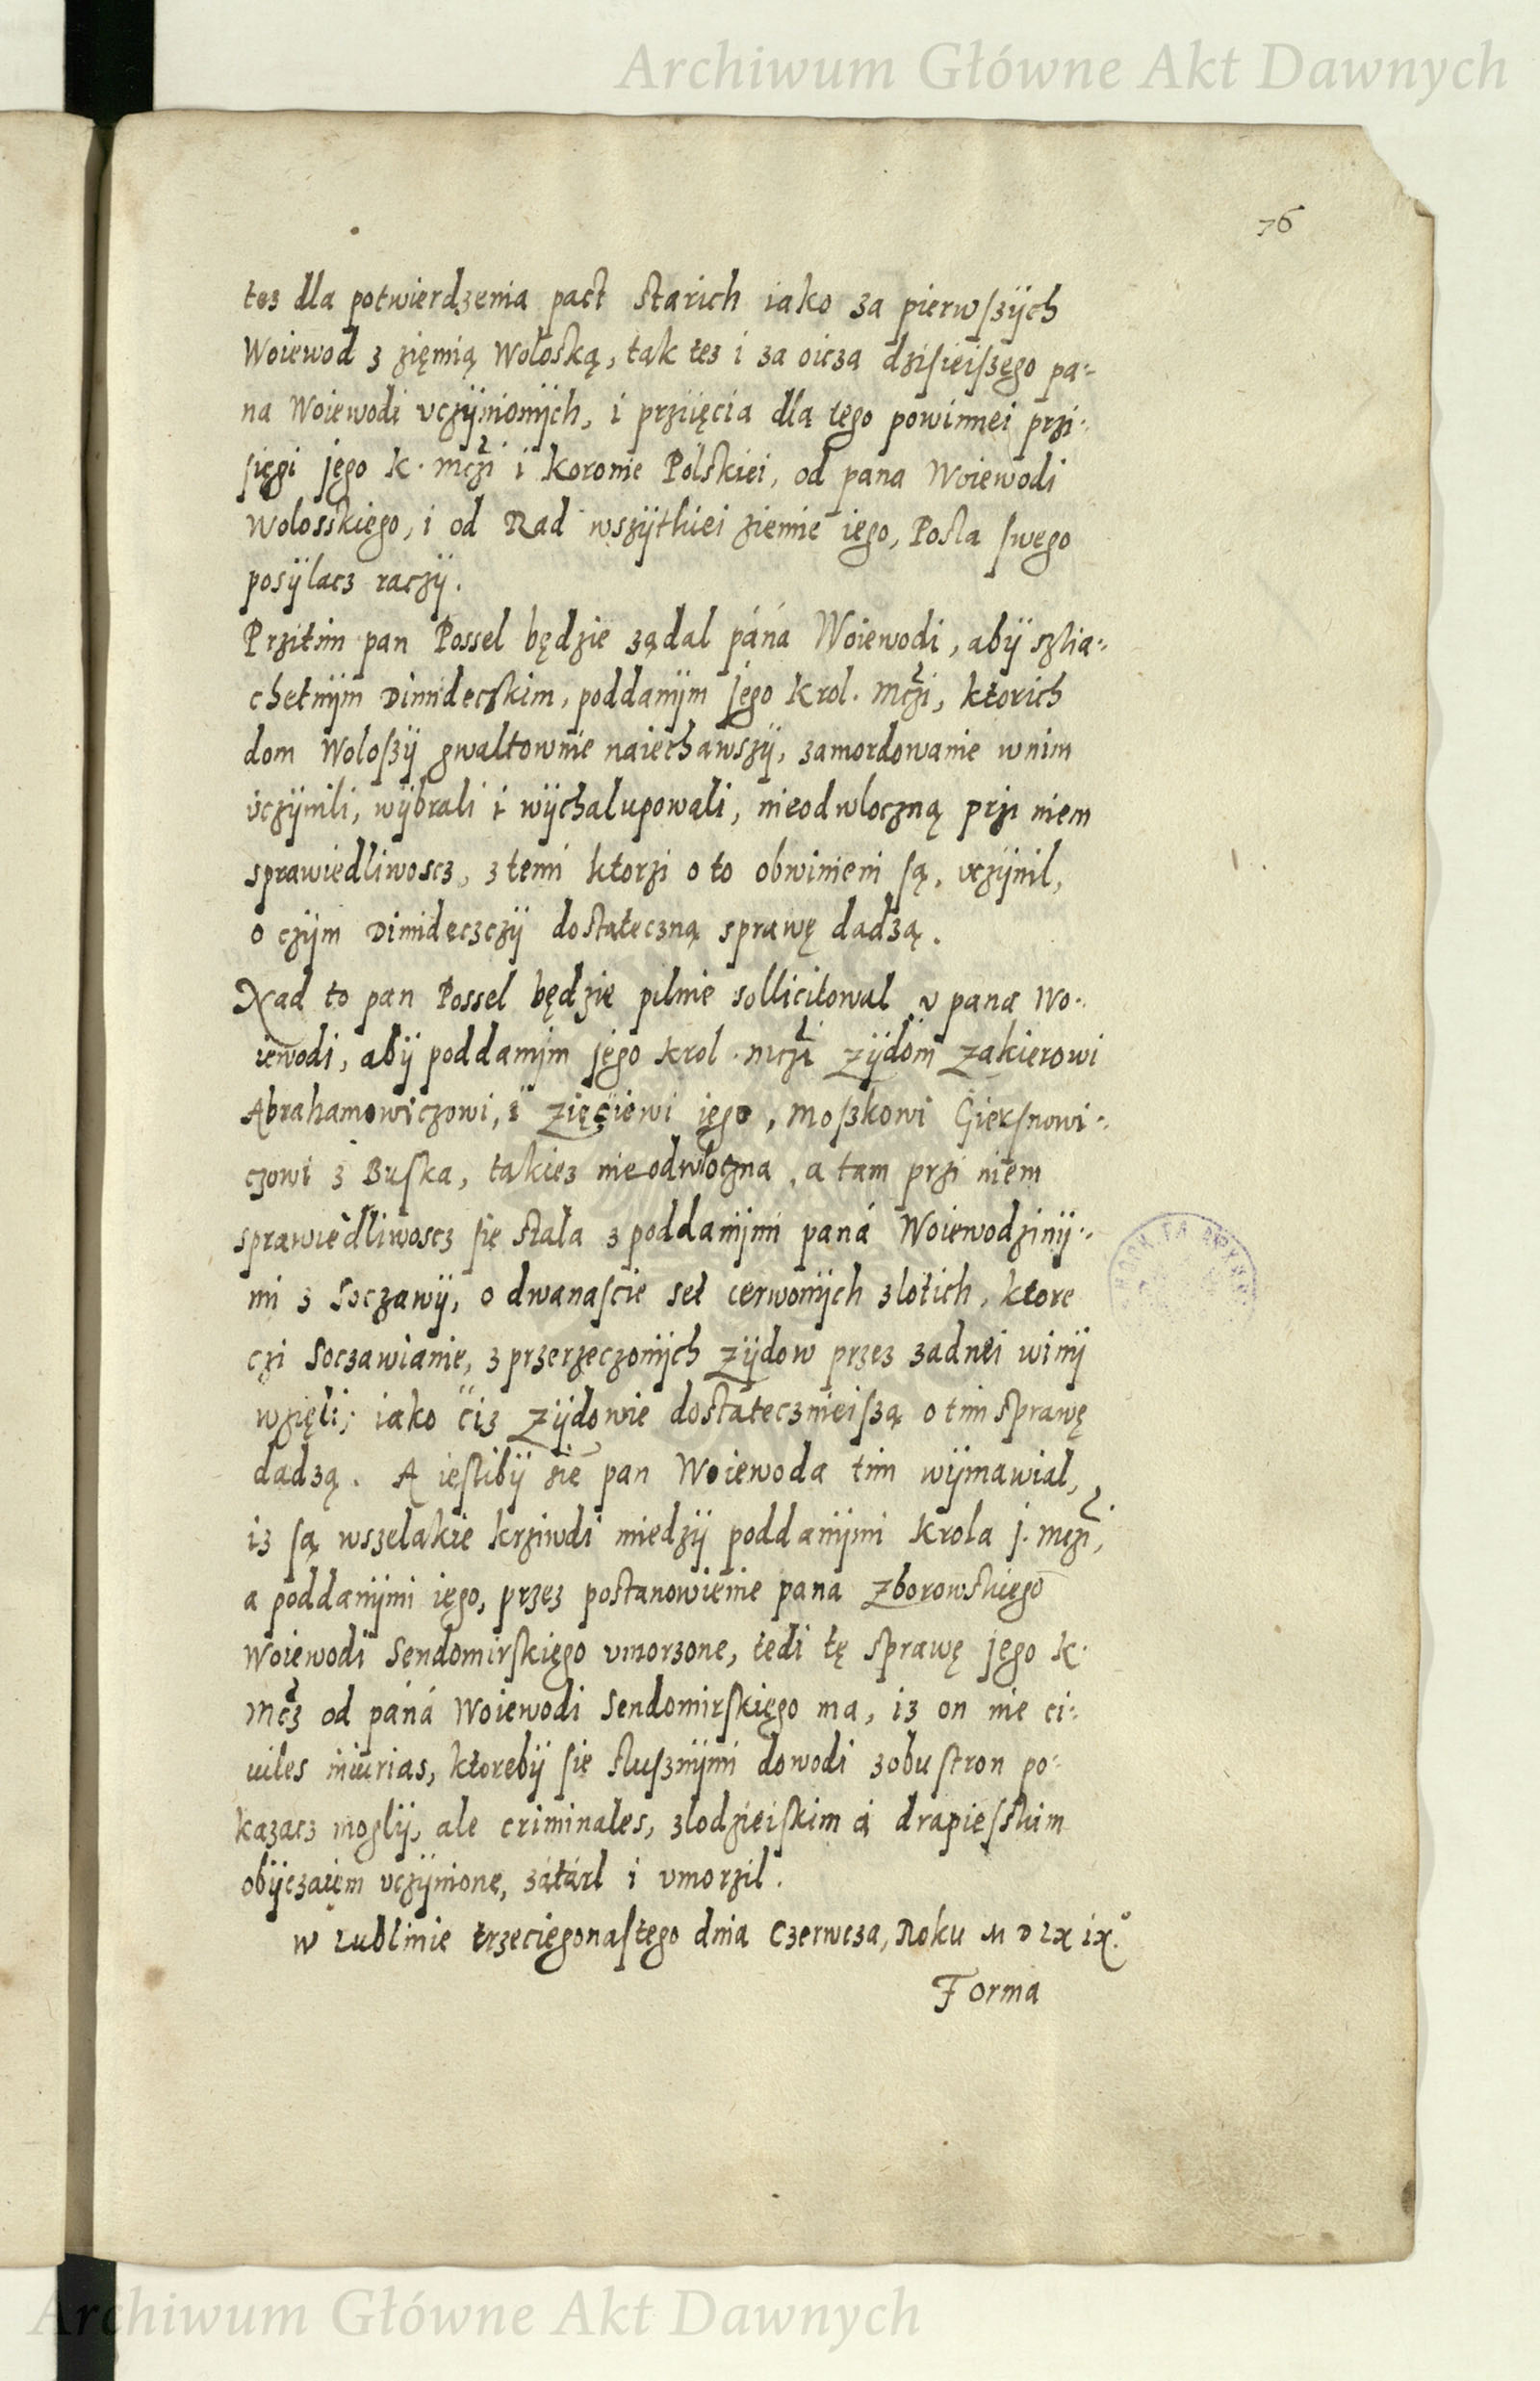 Archiwum Główne Akt Dawnych
76
tes dla potwierdzenia pact starich iako za pierwszych
Woiewod z zięmią Wołoską, tak tez i za oicza dzisieiszego pa-
na Woiewodi vczynionych, i przijęcia dla tego powinnei przi-
sięgi jego k. mczi i koronie Polskiei, od pana Woiewodi
Wolosskiego, i od Rad wszytkiei ziemie iego, Posla swego
posylacz raczy.
Przitim pan Possel będzie ządal páná Woiewodi, aby szlia-
chetnym Dimideczkim, poddanym jego Krol. Mczi, ktorich
dom Woloszy gwaltownie naiechawszy, zamordowanie wnim
vczynili, wybrali i wychalupowali, nieodwloczną przi niem
sprawiedliwoscz, z temi ktorzi o to obwinieni są, vczynil,
o czym Dimideczczy dostateczną sprawę dadzą.
Nad to pan Possel będzie pilnie sollicitowal v pana Wo-
iewodi, aby poddanym jego krol. mczi Zydom Zakierowi
Abrahamowiczowi, i Zięciowi iego, Moszkowi Giersnowi-
czowi z Buska, takiez nieodwloczna, a tam przi niem
sprawiedliwoscz się stala z poddanymi paná Woiewodziny-
mi z Soczawy, o dwanascie set cerwonych zlotich, ktore
czi Soczawianie, z przerzeczonych Zydow przez zadnei winy
wzięli, iako ciz Zydowie dostatecznieiszą o tim sprawę
dadzą. A iesliby sie pan Woiewoda tim wymawial,
iz są wszelakie krziwdi miedzy poddanymi Krola j. mczi,
a poddanymi iego, przez postanowienie pana Zborowskiego
Woiewodi Sendomirskięgo vmorzone, tedi tę sprawę jego K.
Mcz od páná Woiewodi Sendomirskięgo ma, iz on nie ci-
uiles iniurias, ktoreby sie slusznymi dowodi z obu stron po-
kazacz mogly, ale criminales, zlodzieiskim á drapiesskim
obyczaięm vczynione, zátárl i vmorzil.
w Lublinie trzeciegonastego dnia Czerwcza, Roku MDLXIX.°
Forma
Archiwum Główne Akt Dawnych